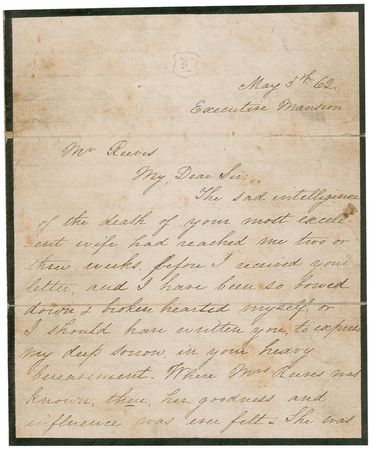 May 5th 62.
Executive Mansion
Mr Reeves
My Dear Sir:
The sad intelligence
of the death of your most excell-
ent wife had reached me two or
three weeks, before I received your
letter, and I have been so bowed
down & broken hearted myself, or
I should have written you, to express
my deep sorrow, in your heavy
bereavement. Where Mrs Reeves was
known, there, her goodness and
influence was ever felt. She was